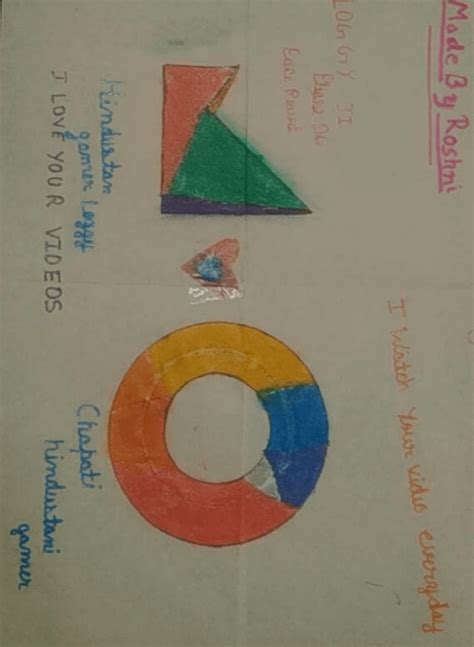 Made By Roshni
I Watch Your video everyday
LOGGY JI
Please Do
Face Reveal
Hindustan
gamer Loggy
I LOVE YOUR VIDEOS
Chapati
hindustani
gamer